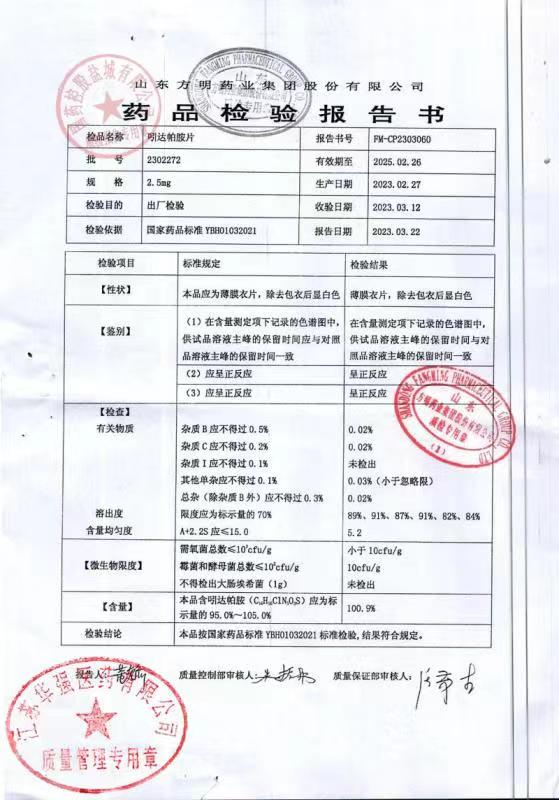 山东方明药业集团股份有限公司
药品检验报告书
检品名称 吲达帕胺片 报告书号 FM-CP2303060
批 号 2302272 有效期至 2025.02.26
规 格 2.5mg 生产日期 2023.02.27
检验目的 出厂检验 收验日期 2023.03.12
检验依据 国家药品标准YBH01032021 报告日期 2023.03.22
检验项目 标准规定 检验结果
【性状】 本品应为薄膜衣片，除去包衣后显白色 薄膜衣片，除去包衣后显白色
【鉴别】 （1）在含量测定项下记录的色谱图中， 在含量测定项下记录的色谱图中，
供试品溶液主峰的保留时间应与对照 供试品溶液主峰的保留时间与对
品溶液主峰的保留时间一致 照品溶液主峰的保留时间一致
（2）应呈正反应 呈正反应
（3）应呈正反应 呈正反应
【检查】
有关物质 杂质B应不得过0.5% 0.02%
杂质C应不得过0.2% 0.02%
杂质I应不得过0.1% 未检出
其他单杂应不得过0.1% 0.03%（小于忽略限）
总杂（除杂质B外）应不得过0.3% 0.02%
溶出度 限度应为标示量的70% 89%、91%、87%、91%、82%、84%
含量均匀度 A+2.2S应≤15.0 5.2
需氧菌总数≤10³cfu/g 小于10cfu/g
【微生物限度】 霉菌和酵母菌总数≤10²cfu/g 10cfu/g
不得检出大肠埃希菌（1g） 未检出
【含量】 本品含吲达帕胺（C₁₆H₁₆ClN₃O₃S）应为标 100.9%
示量的95.0%～105.0%
检验结论 本品按国家药品标准YBH01032021标准检验,结果符合规定。
报告人: 质量控制部审核人: 质量保证部审核人:
SHANDONG FANGMING PHARMACEUTICAL GROUP CO., LTD
山东
方明药业集团股份有限公司
质检专用章
（1）
江苏华强医药有限公司
质量管理专用章